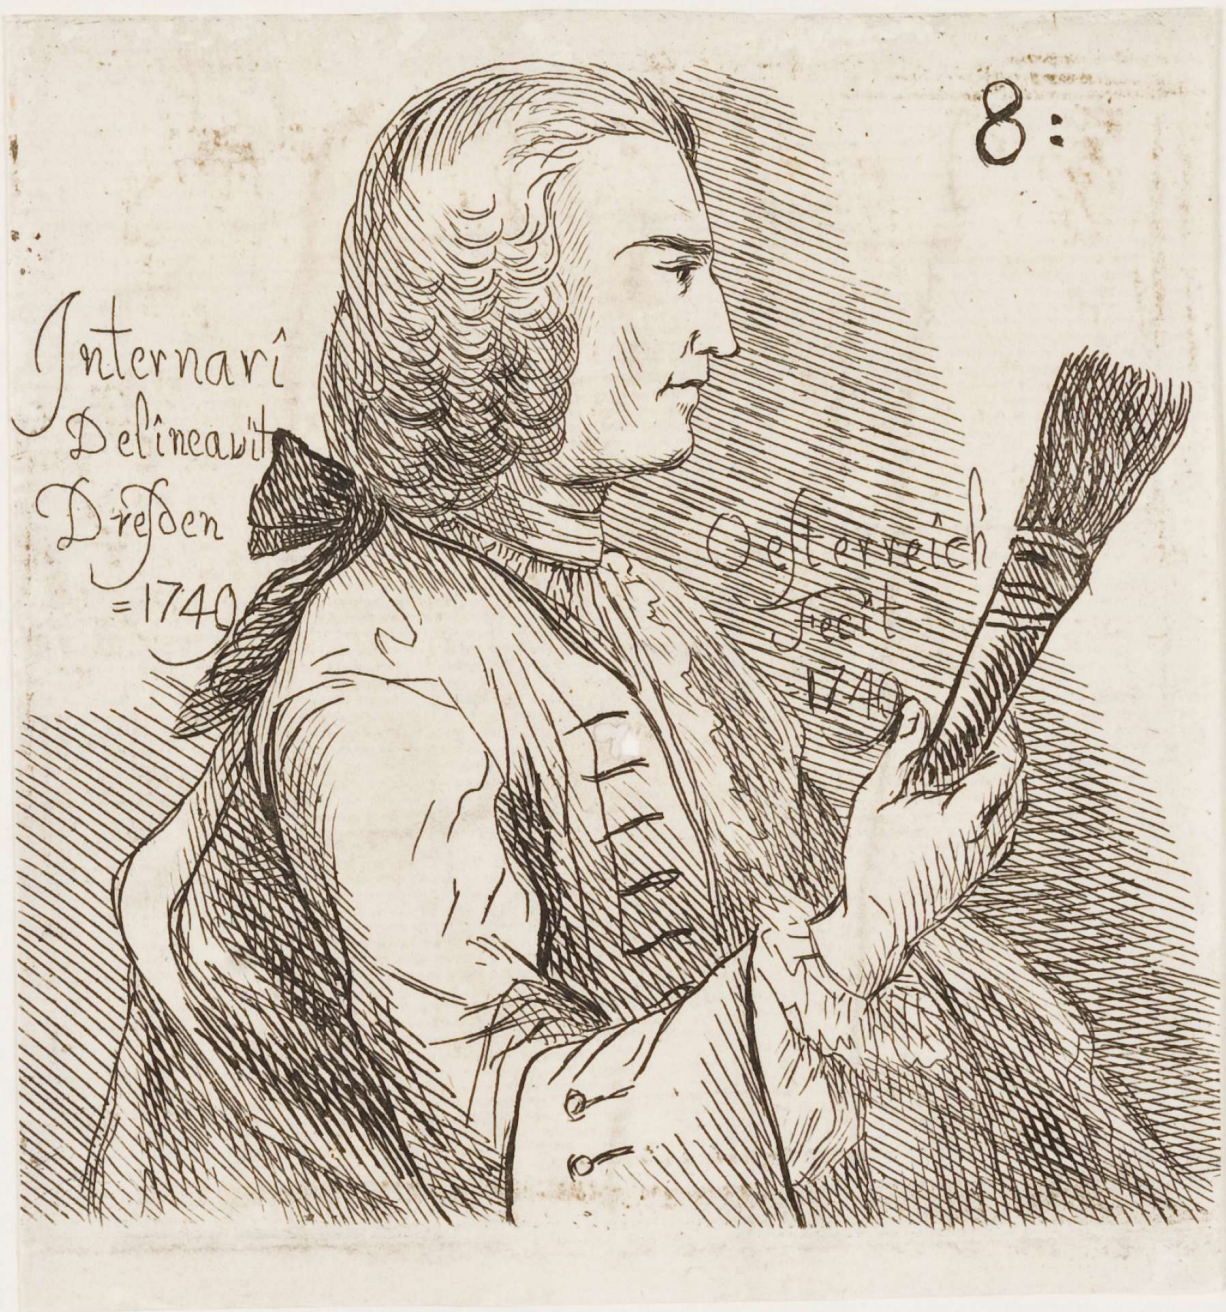 8:
Internari
Delineavit
Dreſden
=1740
Oeſterreich
Fecit
1740